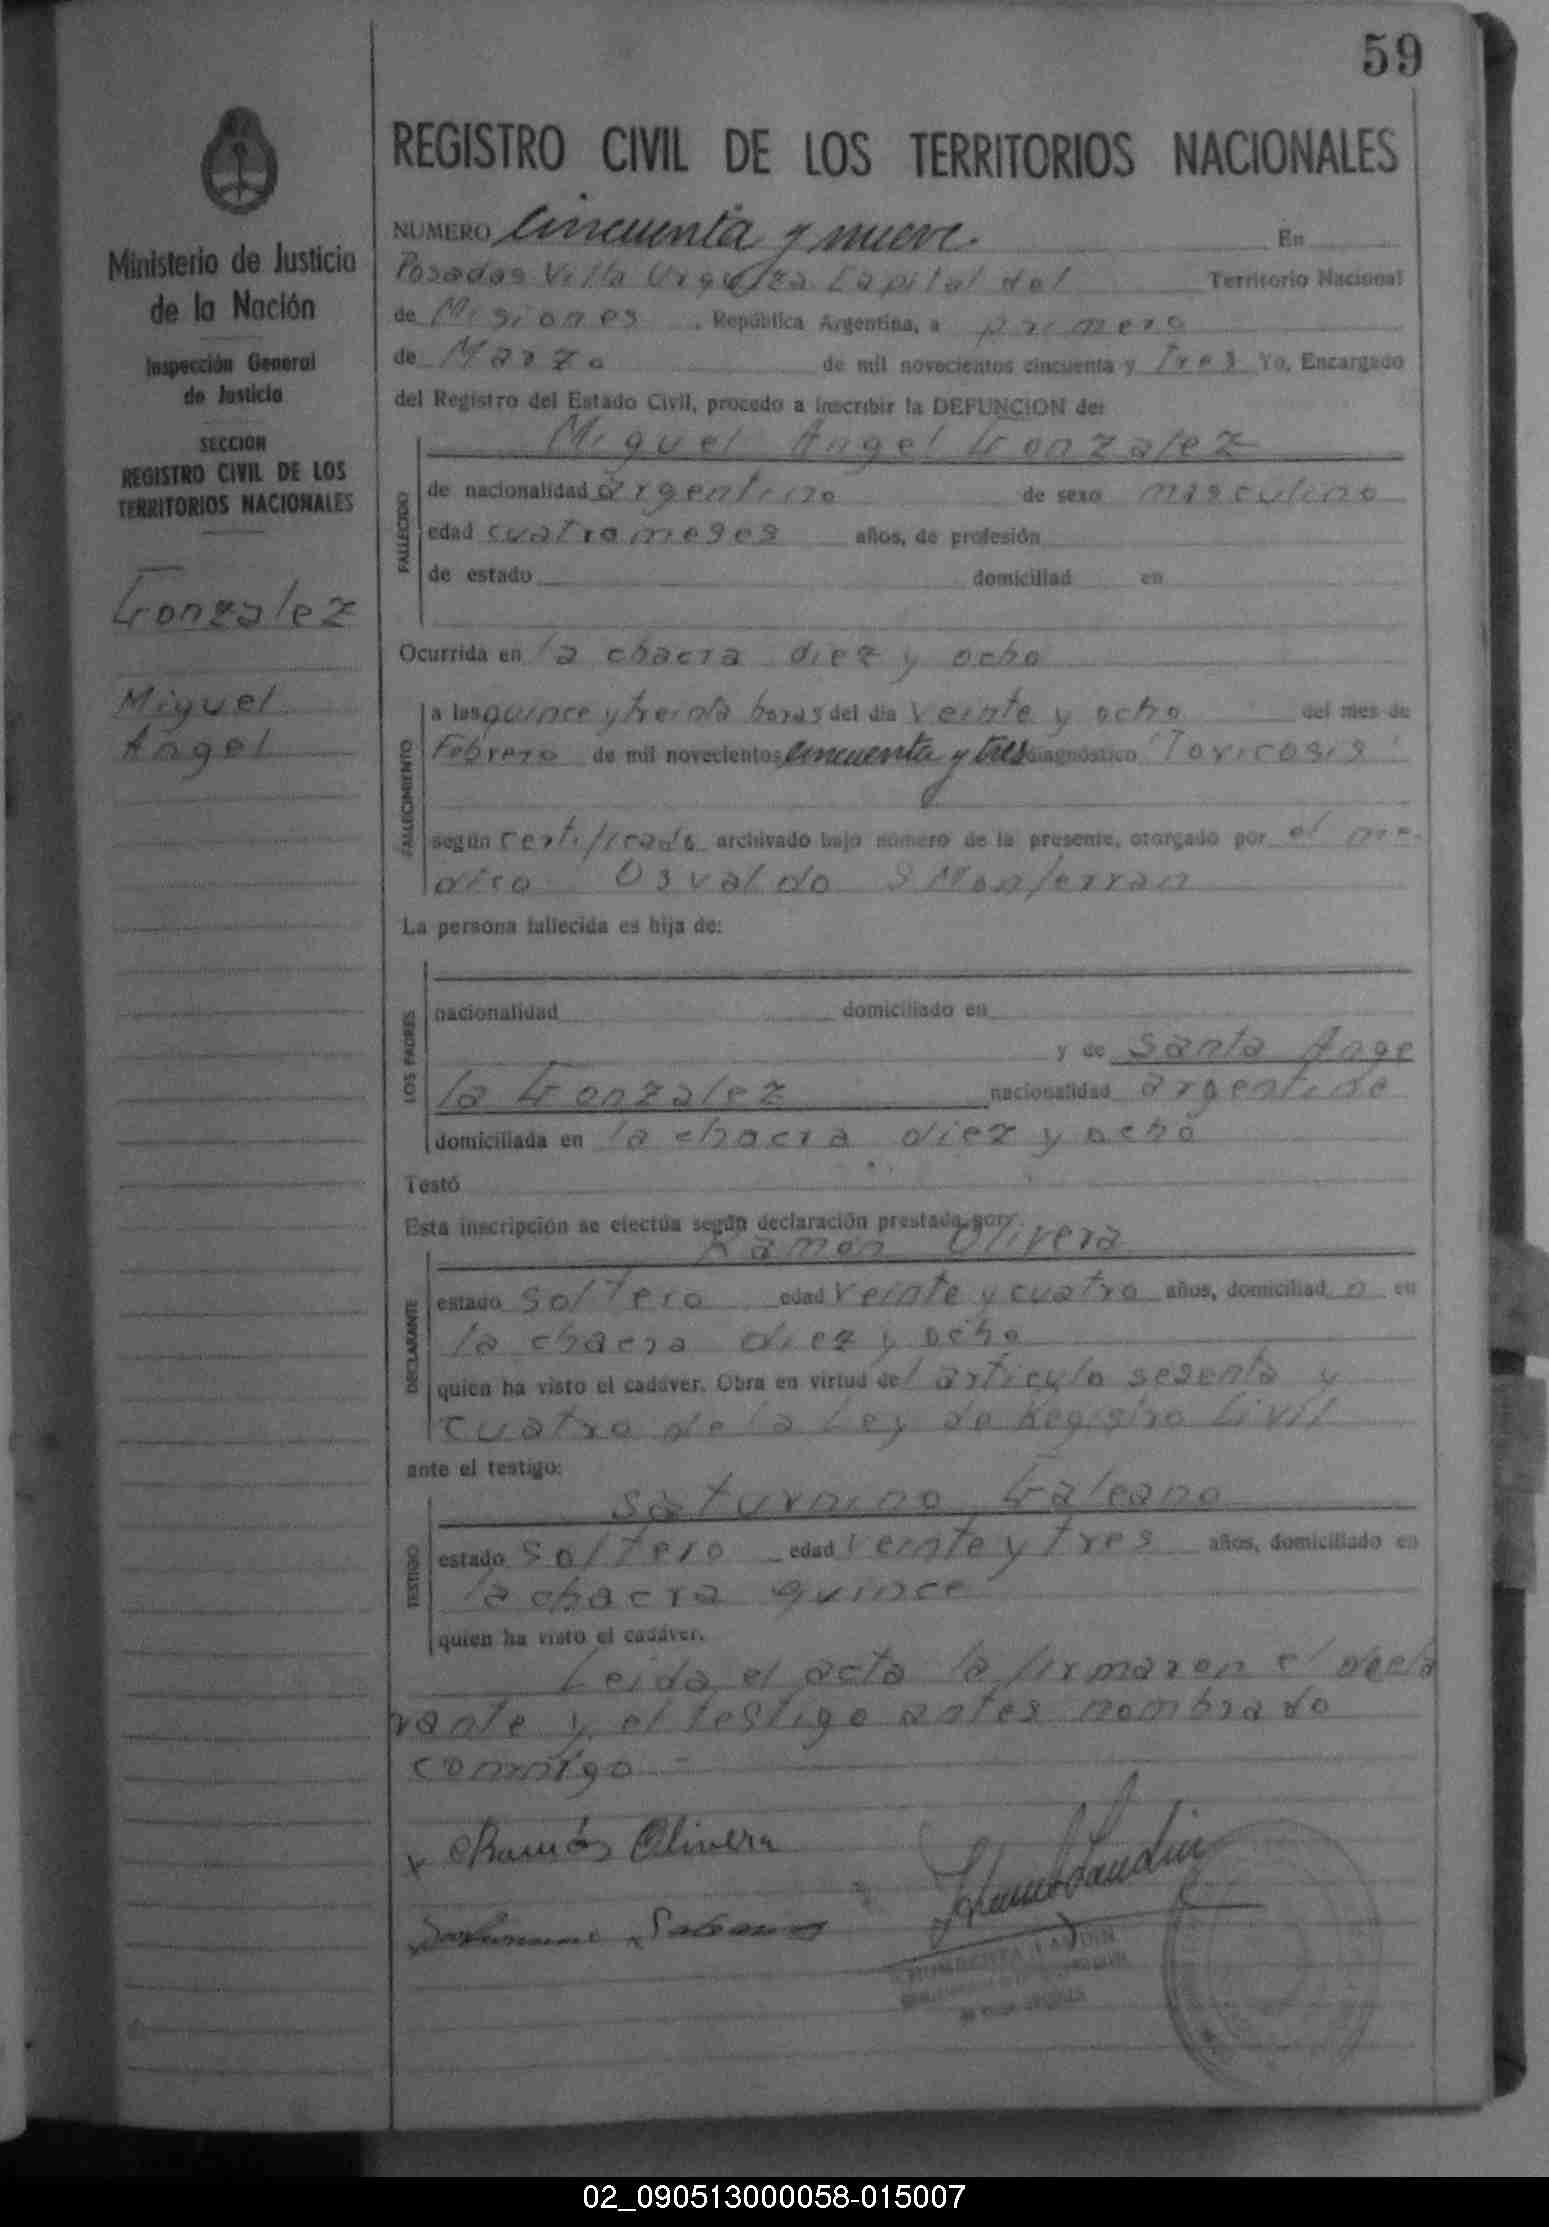 59
REGISTRO CIVIL DE LOS TERRITORIOS NACIONALES
Ministerio de Justicia
de la Nación
Inspección General
de Justicia
SECCION
REGISTRO CIVIL DE LOS
TERRITORIOS NACIONALES
Gonzalez
Miguel
Angel
NUMERO Cincuenta y nueve. En
Posadas Villa Urquiza Capital del Territorio Nacional
de Misiones, República Argentina, a primero
de Marzo de mil novecientos cincuenta y Tres Yo, Encargado
del Registro del Estado Civil, procedo a inscribir la DEFUNCION de:
Miguel Angel Gonzalez
FALLECIDO
de nacionalidad argentino de sexo masculino
edad cuatro meses años, de profesión
de estado domiciliad en
Ocurrida en la chacra diez y ocho
FALLECIMIENTO
a las quince y treinta horas del día veinte y ocho del mes de
Febrero de mil novecientos cincuenta y tres diagnóstico "Toxicosis"
según certificado archivado bajo número de la presente, otorgado por el me-
dico Osvaldo S
La persona fallecida es hija de:
LOS PADRES
nacionalidad domiciliado en
y de Santa Ange
la Gonzalez nacionalidad argentina
domiciliada en la chacra diez y ocho
Testó
Esta inscripción se efectúa según declaración prestada por:
Ramón Olivera
DECLARANTE
estado Soltero edad veinte y cuatro años, domiciliad o en
la chacra diez y ocho
quien ha visto el cadáver. Obra en virtud del articulo sesenta y
cuatro de la Ley de Registro Civil
ante el testigo:
Saturnino Galeano
TESTIGO
estado Soltero edad veinte y tres años, domiciliado en
la chacra quince
quien ha visto el cadáver.
Leida el acta la firmaron el decla
rante y el testigo antes nombrado
conmigo -
x Ramón Olivera
Saturnino Galeano
LANDIN
02_090513000058-015007